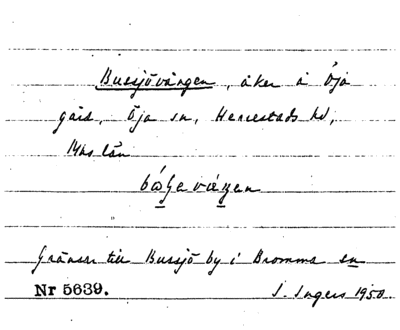 Bussjövången, åker å Öja
gård, Öja sn, Herrestads hd,
Mhs län
Gränsar till Bussjö by i Bromma sn
Nr 5639. I. Ingers 1950